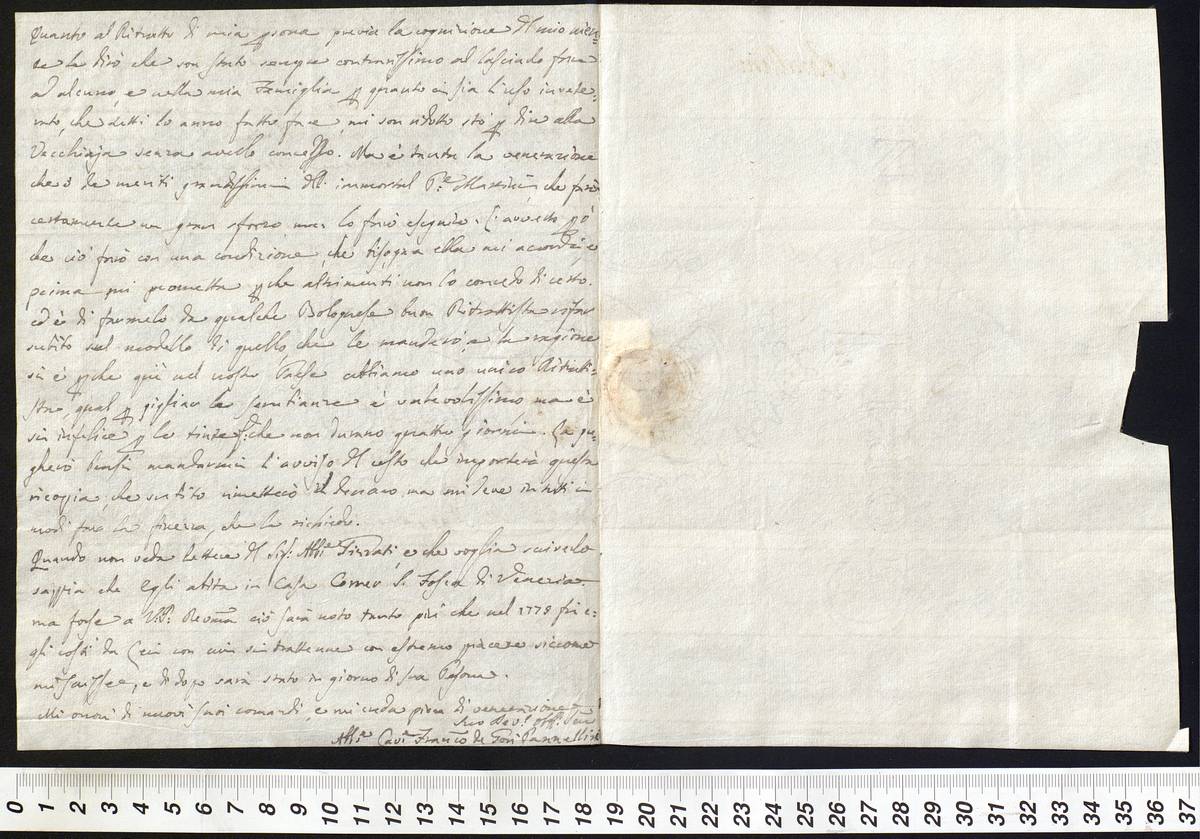 Quanto al Ritratto di mia persona previa la cognizione del mio nien-
te la dirò che son stato sempre contrarissimo al lasciarlo fare
ad alcuno, e nella mia Famiglia per quanto ci sia l'uso invete-
rato, che tutti lo anno fatto fare, mi son ridotto sto per dire alla
Vecchiaja senza averlo concesso. Ma è tanta la venerazione
che ò de meriti grandissimi dell' immortal P.re Martini, che farò
certamente un gran sforzo ma lo farò eseguire. L'avverto però
che ciò farò con una condizione, che bisogna ella mi accordi, e
prima mi prometta perche altrimenti non lo concedo di certo.
ed è di farmelo da qualche Bolognese buon Ritrattista rifar
subito sul modello di quello, che le manderò, e la ragione
si è perche quì nel nostro Paese abbiamo uno unico Ritratti-
sta, qual per pigliar le sembianze è valevolissimo ma è
sì infelice per le tinte, che non durano quattro giorni. La pre-
gherò mandarmi l'avviso del costo che importerà questa
ricopia, che subito rimetterò il denaro, ma mi deve in tutti i
modi fare la finezza, che la richiedo.
Quando non veda lettere del Sig.r Abb.e e che voglia scriverlo
sappia che Egli abita in Casa Corner S. Fosca di Venezia
ma forse a V.P. Rev.ma ciò sarà noto tanto più che nel 1778 fu e-
gli costì da Lei con cui si trattenne con estremo piacere siccome
mi scrisse, e di dopo sarà stato in giorno di sua Persona.
Mi onori di nuovi suoi comandi, e mi creda pieno di venerazione
Suo dev.o obb.o Ser.e
Abb.e Cav.e Franc.o de Gori Pannellini
0 1 2 3 4 5 6 7 8 9 10 11 12 13 14 15 16 17 18 19 20 21 22 23 24 25 26 27 28 29 30 31 32 33 34 35 36 37